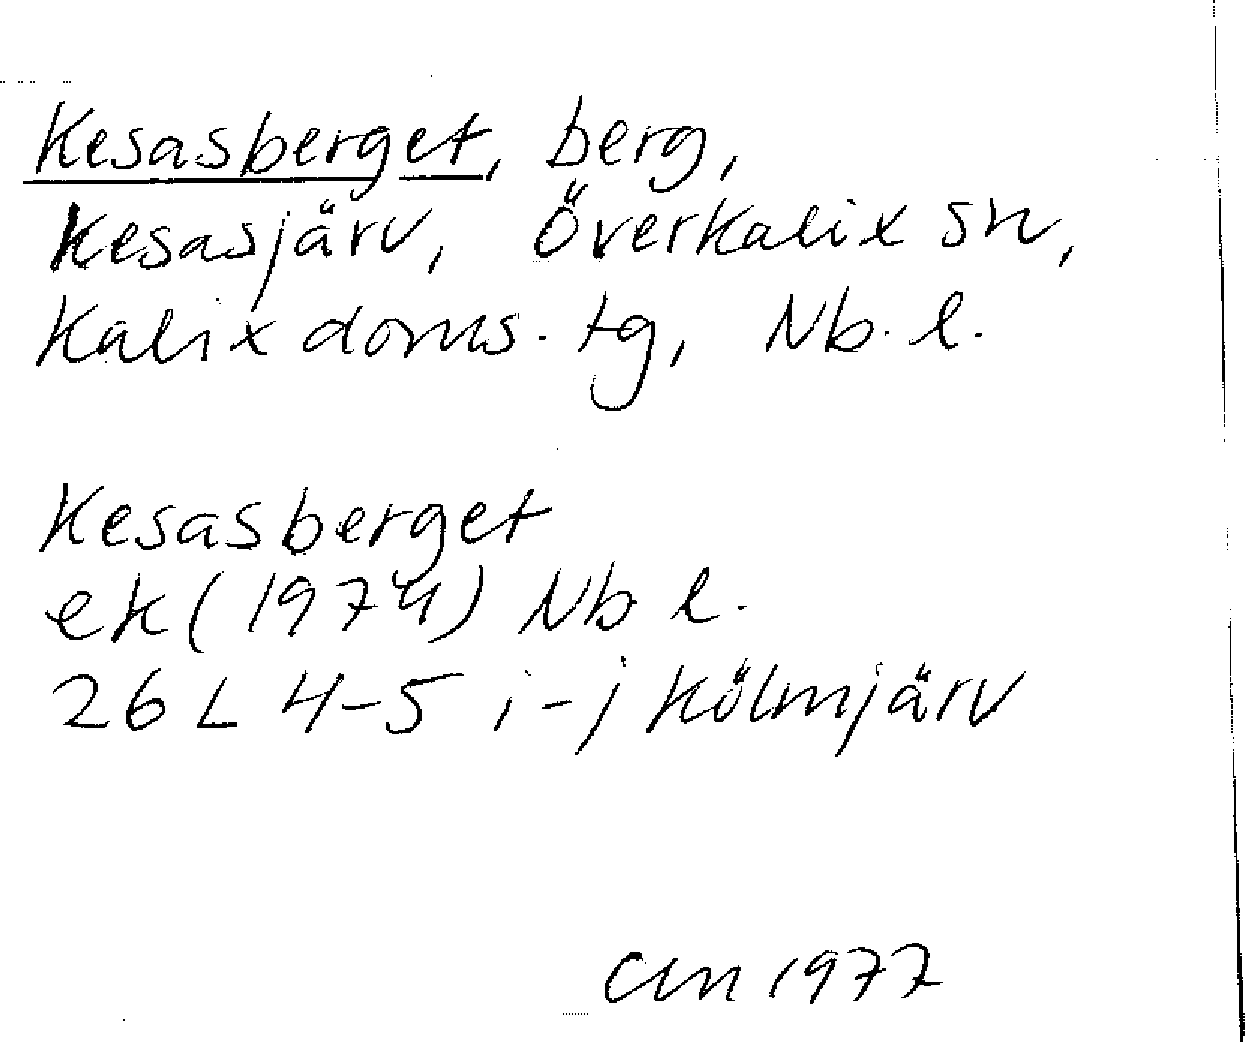 Kesasberget, berg,
Kesasjärv, Överkalix sn,
Kalix doms. tg, Nb. l.
Kesasberget
ek (1974) Nb l.
26 L 4-5 i-j Kölmjärv
1977